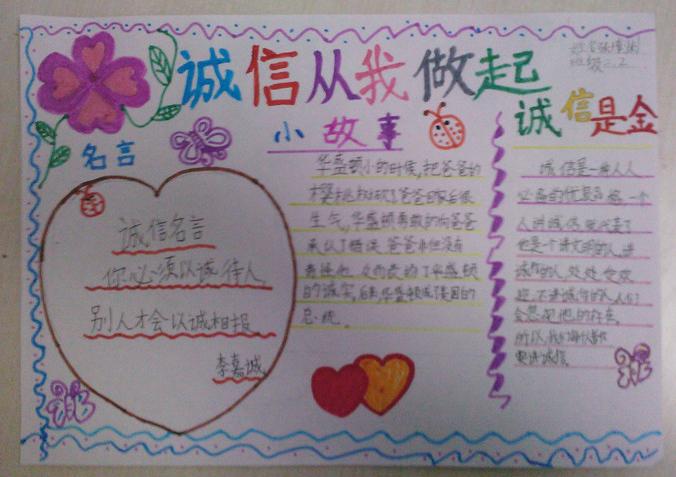 诚信从我做起
姓名
班级二.2
名言
诚信名言
你必须以诚待人,
别人才会以诚相报
李嘉诚
小故事
华盛顿小的时候,把爸爸的
樱桃树砍了爸爸回家后很
生气,华盛顿勇敢的向爸爸
承认了错误.爸爸非但没有
的诚实,后来,华盛顿成了美国的
总统。
诚信是金
诚信是一种人人
必备的优良品格,一个
人讲诚信,就代表了
他是个讲文明的人.讲
诚信的人,处处受欢
迎,不讲诚信的人,人们
会忽视他的存在.
所以,我们每个人都
要讲诚信。